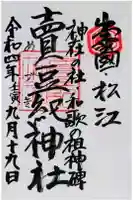 出雲國 松江
神社の社 和歌の祖神碑
賣豆紀神社
めづき
令和四年壬寅九月十九日